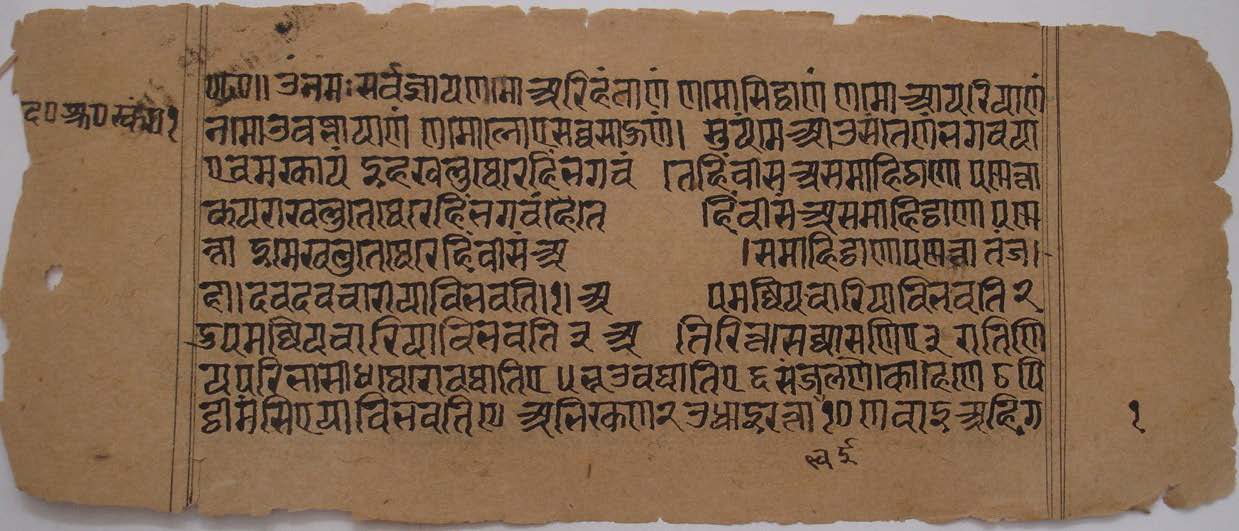 ॥ ॐ नमः सर्वज्ञाय णमो अरिहंताणं णमो सिद्धाणं णमो आयरियाणं
नमो उवज्झायाणं णमो लोए सव्वसाहूणं। सुयं मे आउसं तेणं भगवया
एवमक्खायं इह खलु थेरेहिं भगवंतेहिं वीसं असमाहिठाणा पण्णत्ता
कयरे खलु ते थेरेहिं भगवंतेहिं वीसं असमाहिट्ठाणा पण्ण
त्ता इमे खलु ते थेरेहिं वीसं अ।समाहिट्ठाणा पण्णत्ता तं ज।
हा। दवदवचारी यावि भवति।१। अपमज्जियचारि यावि भवति २
दुपमज्जियचारि यावि भवति ३ अतिरित्तसेज्जासणिए ४ रातिणि
य परिभासी थेरोवघातिए ५ भूओवघातिए ६ संजलणे कोहणे ८ पि
ट्ठीमंसिए यावि भवति ९ अभिक्खणं २ ओधारइत्ता १० णवाइं अहिग
१